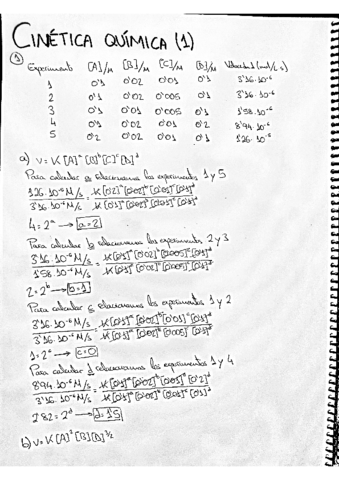 CINÉTICA QUÍMICA (1)
① Experimento [A]/M [B]/M [C]/M [D]/M Velocidad (mol/L s)
1 0'1 0'02 0'01 0'1 3'16·10⁻⁶
2 0'1 0'02 0'005 0'1 3'16·10⁻⁶
3 0'1 0'01 0'005 0'1 1'58·10⁻⁶
4 0'1 0'02 0'01 0'2 8'94·10⁻⁶
5 0'2 0'02 0'01 0'1 1'26·10⁻⁵
a) v = K [A]ᵃ [B]ᵇ [C]ᶜ [D]ᵈ
Para calcular a relacionamos los experimentos 1 y 5
12'6·10⁻⁶ M/s = K [0'2]ᵃ [0'02]ᵇ [0'01]ᶜ [0'1]ᵈ
3'16·10⁻⁶ M/s K [0'1]ᵃ [0'02]ᵇ [0'01]ᶜ [0'1]ᵈ
4 = 2ᵃ → a = 2
Para calcular b relacionamos los experimentos 2 y 3
3'16·10⁻⁶ M/s = K [0'1]ᵃ [0'02]ᵇ [0'005]ᶜ [0'1]ᵈ
1'58·10⁻⁶ M/s K [0'1]ᵃ [0'01]ᵇ [0'005]ᶜ [0'1]ᵈ
2 = 2ᵇ → b = 1
Para calcular c relacionamos los experimentos 1 y 2
3'16·10⁻⁶ M/s = K [0'1]ᵃ [0'02]ᵇ [0'01]ᶜ [0'1]ᵈ
3'16·10⁻⁶ M/s K [0'1]ᵃ [0'02]ᵇ [0'005]ᶜ [0'1]ᵈ
1 = 2ᶜ → c = 0
Para calcular d relacionamos los experimentos 1 y 4
8'94·10⁻⁶ M/s = K [0'1]ᵃ [0'02]ᵇ [0'01]ᶜ [0'2]ᵈ
3'16·10⁻⁶ M/s K [0'1]ᵃ [0'02]ᵇ [0'01]ᶜ [0'1]ᵈ
2'82 = 2ᵈ → d = 1'5
b) v = K [A]² [B] [D]^3/2